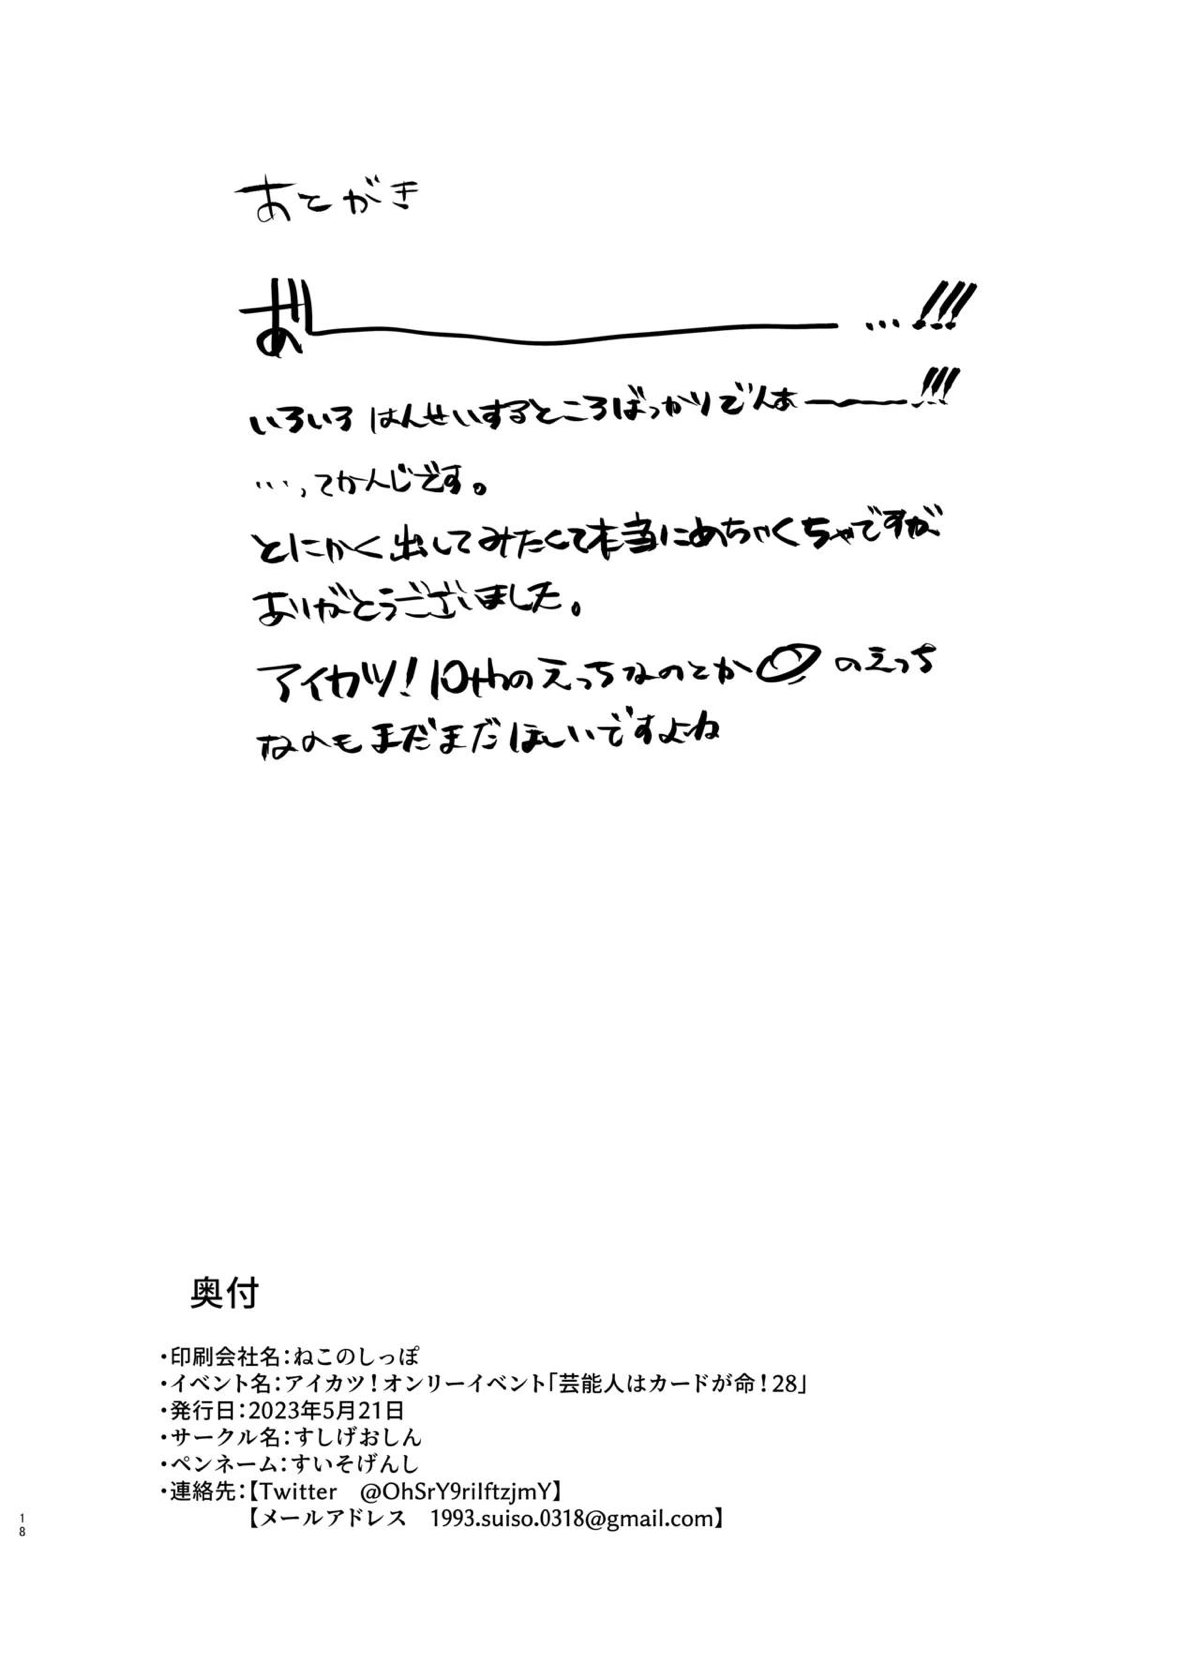 あとがき
お゛———…!!!
いろいろはんせいするところばっかりでんあ———!!!
…ってかんじです。
とにかく出してみたくて本当にめちゃくちゃですが
ありがとうございました。
アイカツ!10thのえっちなのとか のえっち
なのもまだまだほしいですよね
奥付
・印刷会社名：ねこのしっぽ
・イベント名：アイカツ！オンリーイベント「芸能人はカードが命！28」
・発行日：2023年5月21日
・サークル名：すしげおしん
・ペンネーム：すいそげんし
・連絡先：【Twitter　@OhSrY9riIftzjmY】
【メールアドレス　1993.suiso.0318@gmail.com】
18